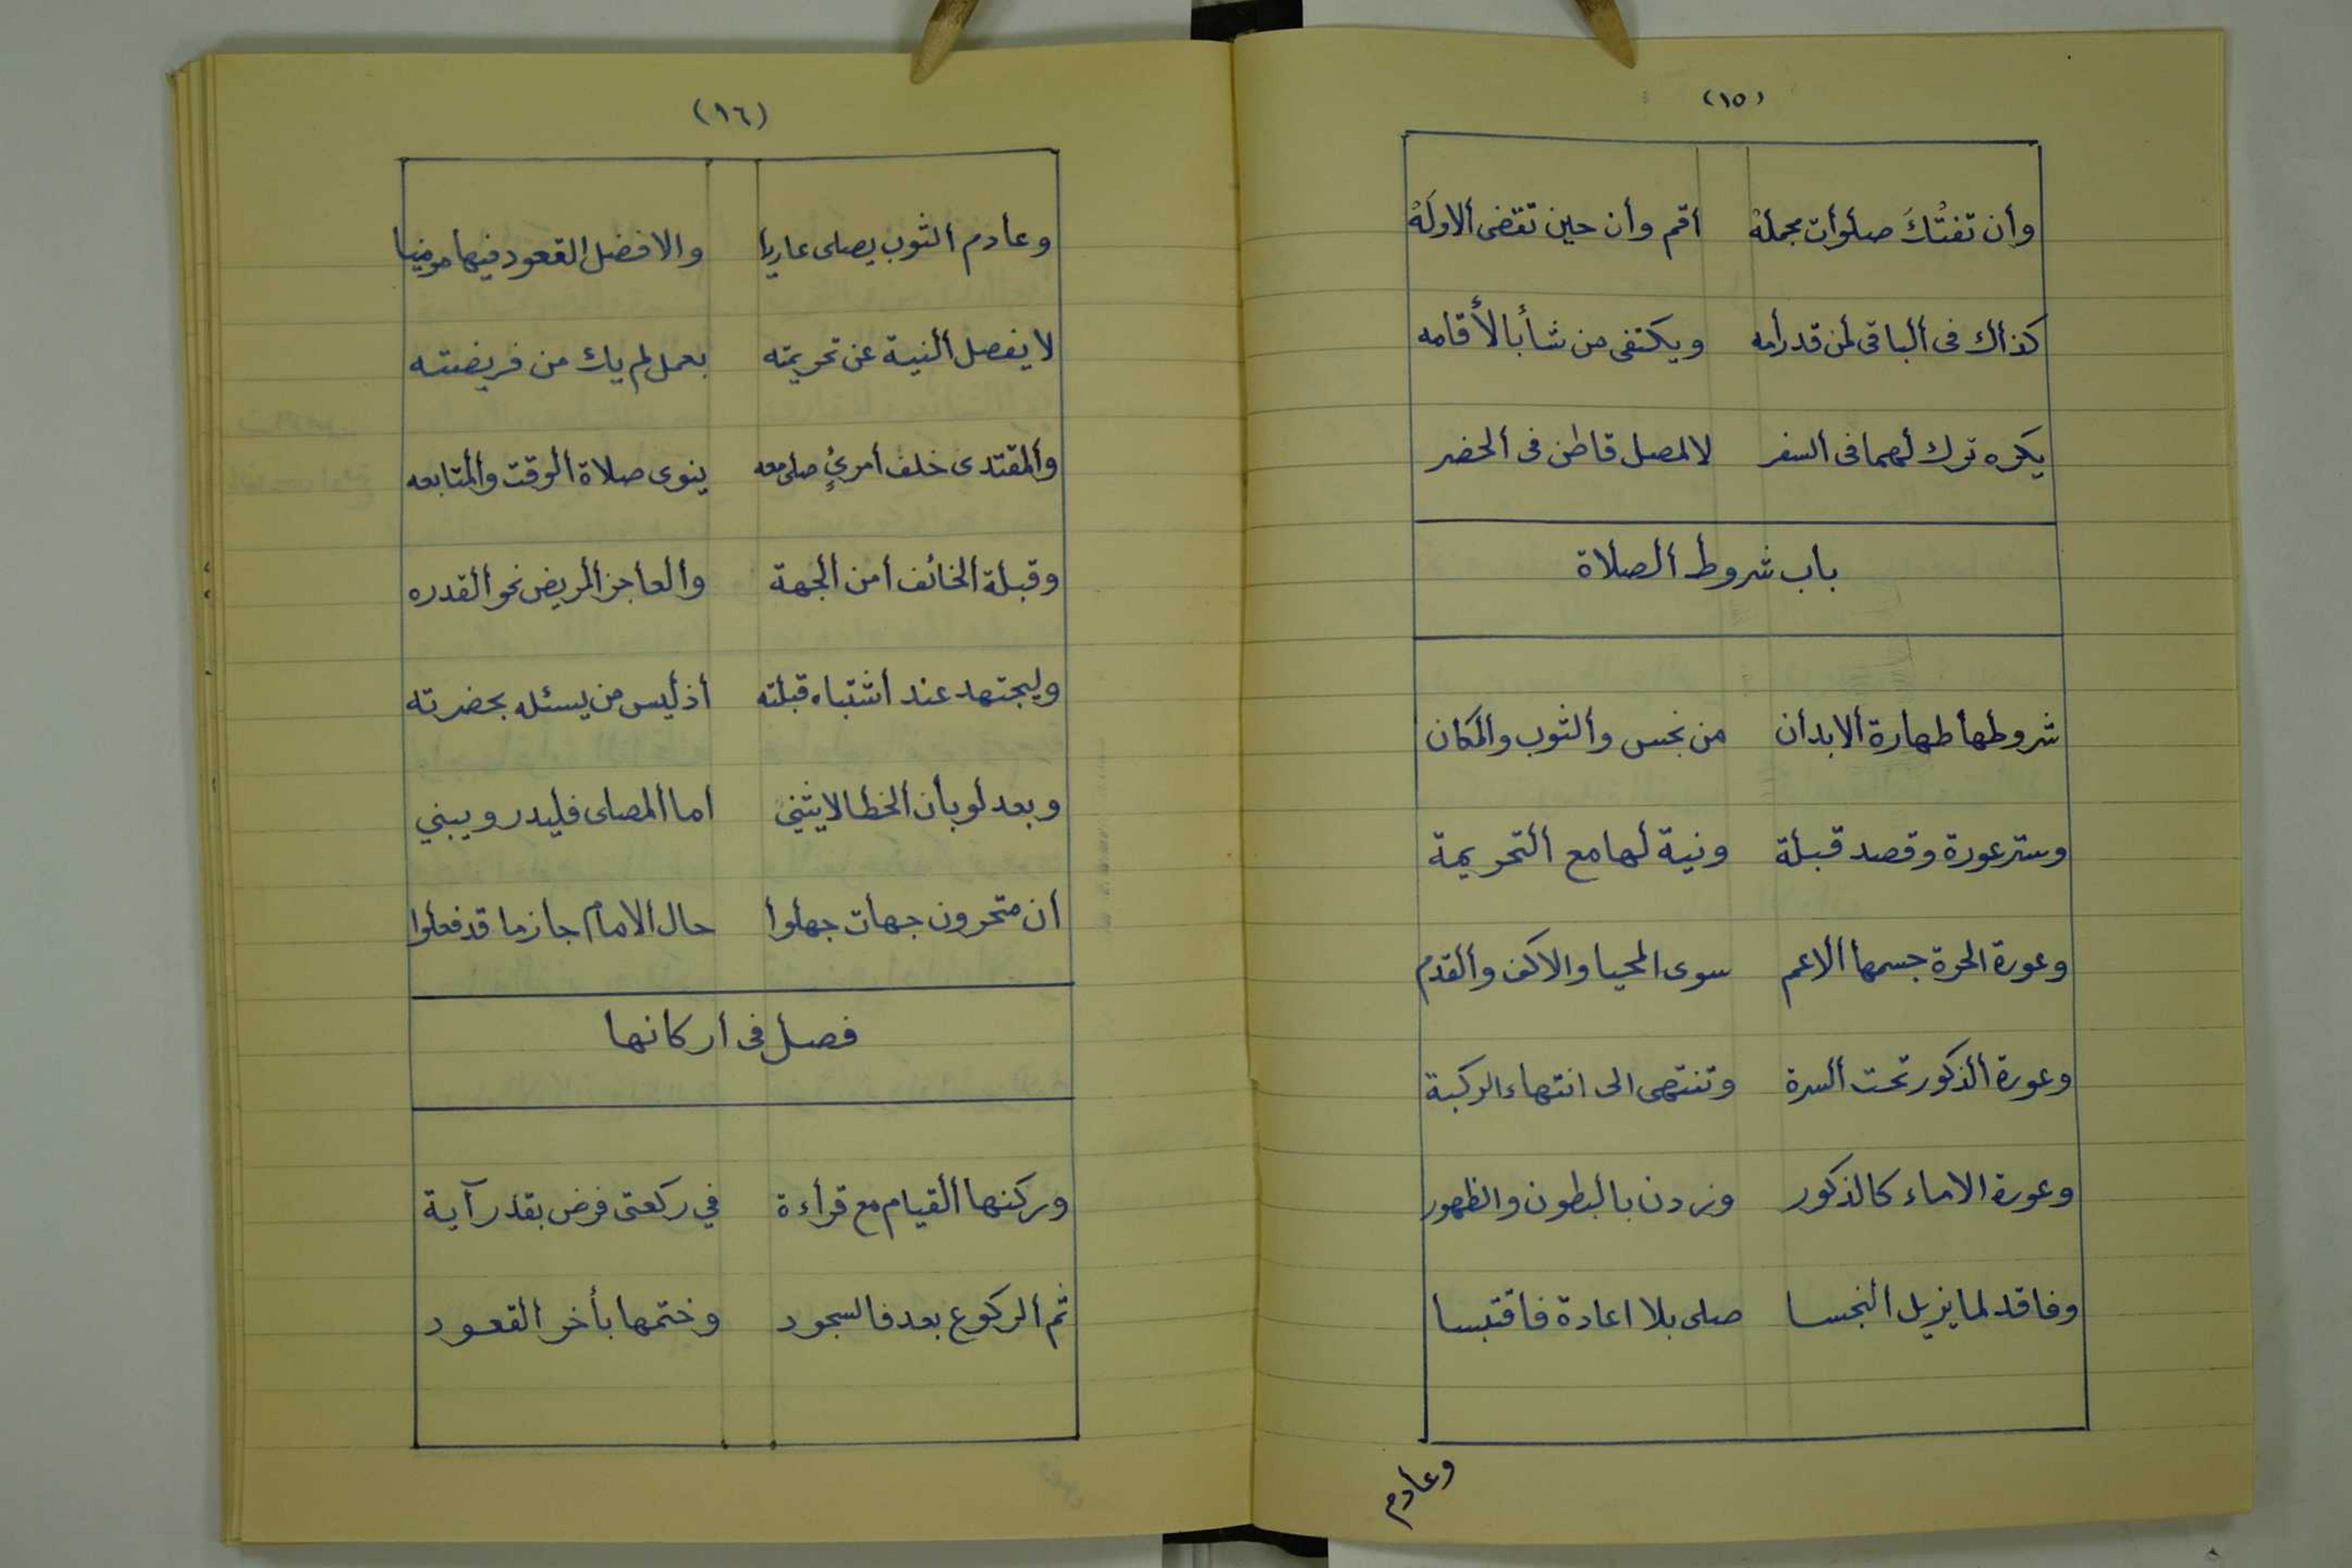 (١٥)
وأن تفتْكَ صلوأت مجملهْ أقم وأن حين تقضى ألاولهْ
كذأك فى ألباقى لمن قد رأمه ويكتفى من شأ بالأقامه
يكره ترك لهما فى ألسفر لا لمصل قاطن فى ألحضر
باب شروط ألصلاة
شروطها طهارة ألابدأن من نجس وألثوب وألمكان
وستر عورة وقصد قبلة ونية لها مع ألتحريمة
وعورة الحرة جسمها ألاعم سوى المحيا والاكف وألقدم
وعورة ألذكور تحت ألسرة وتنتهى الى انتهاء الركبة
وعورة الاماء كالذكور وزدن بالبطون والظهور
وفاقد لما يزيل ألنجسا صلى بلا اعادة فاقتبسا
وعادم
(١٦)
وعادم ألثوب يصلى عاريا والافضل القعود فيها موميا
لا يفصل ألنية عن تحريمته بعمل لم يك من فريضته
وألمقتدى خلف أمرئٍ صلى معه ينوى صلاة ألوقت وألمتابعه
وقبلة ألخائف أمن ألجهة وألعاجز ألمريض نحو ألقدره
وليجتهد عند أشتباه قبلته أذ ليس من يسئله بحضرته
وبعد لو بأن ألخطا لا يثني أما ألمصلى فليدر ويبني
أن متحرون جهات جهلوأ حال ألامام جاز ما قد فعلوا
فصل فى أركانها
وركنها ألقيام مع قرأءة في ركعتى فرض بقدر آية
ثم ألركوع بعد فالسجود وختمها بأخر ألقعود